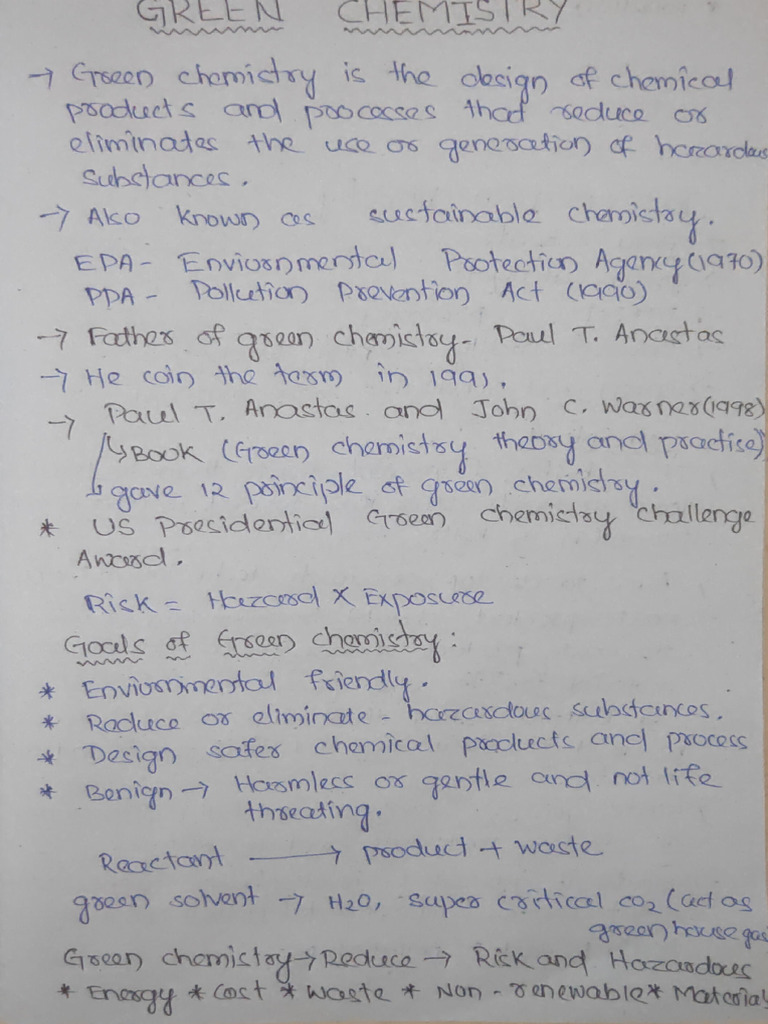 GREEN CHEMISTRY
→ Green chemistry is the design of chemical
products and processes that reduce or
eliminates the use or generation of hazardous
substances.
→ Also known as sustainable chemistry.
EPA - Enviornmental Protection Agency (1970)
PPA - Pollution Prevention Act (1990)
→ Father of green chemistry - Paul T. Anastas
→ He coin the term in 1991.
→ Paul T. Anastas and John C. Warner (1998)
↳ BOOK (Green chemistry theory and practise)
↳ gave 12 principle of green chemistry.
* US Presidential Green chemistry challenge
Award.
Risk = Hazard X Exposure
Goals of Green chemistry:
* Enviornmental friendly.
* Reduce or eliminate - hazardous substances.
* Design safer chemical products and process
* Benign → Harmless or gentle and not life
threating.
Reactant ⟶ product + waste
green solvent → H2O, super critical CO2 (act as
green house gas
Green chemistry → Reduce → Risk and Hazardous
* Energy * Cost * Waste * Non - renewable * Material